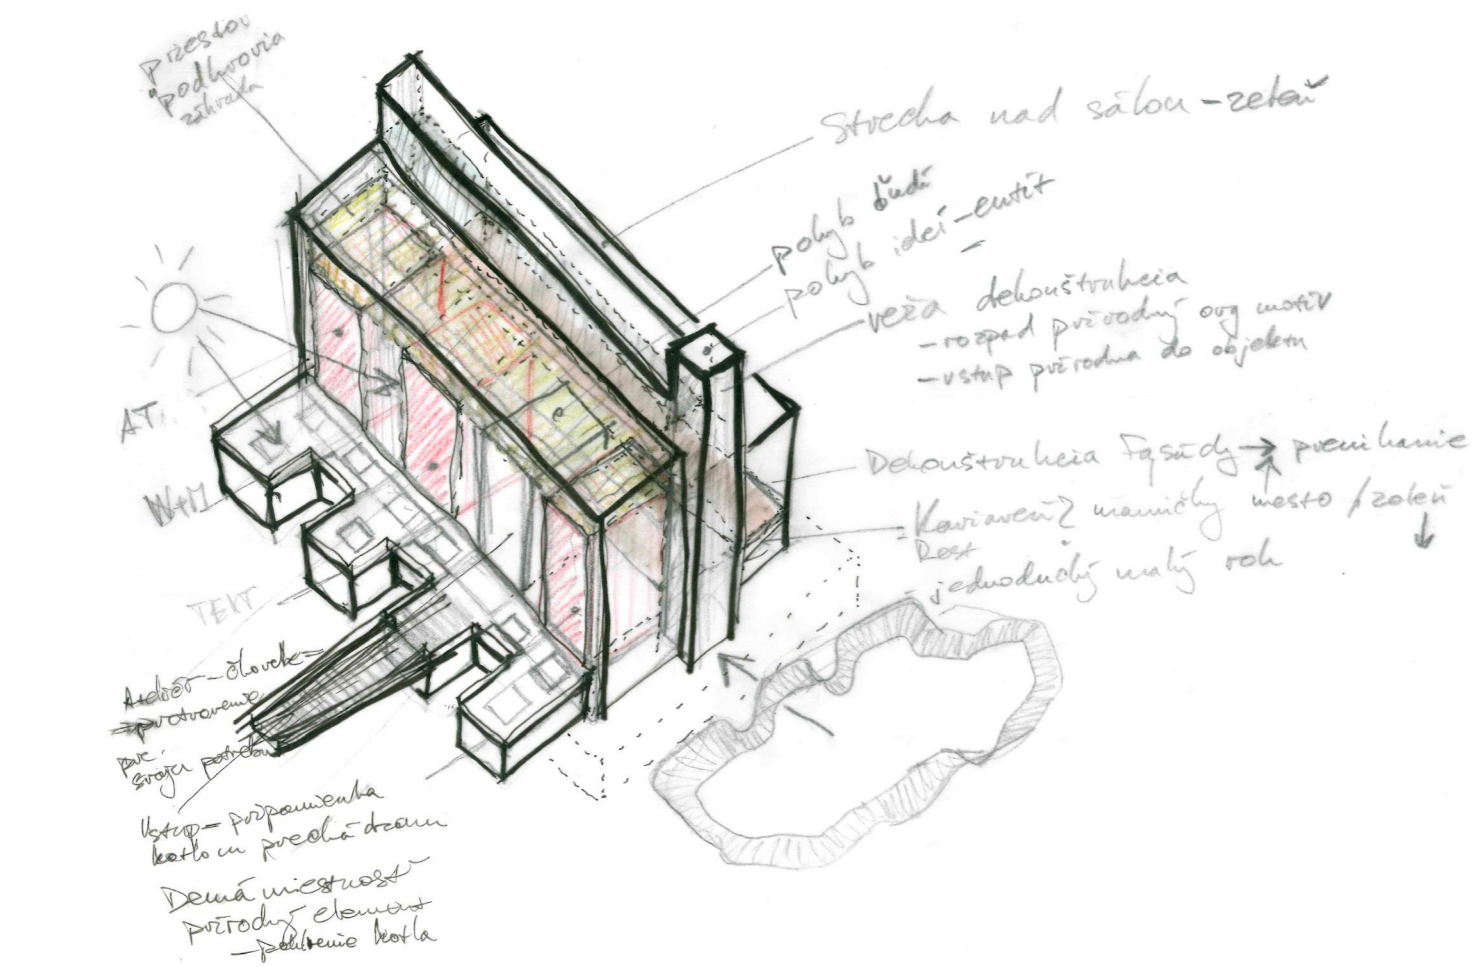 priestor
podkrovia
záhrada
Strecha nad sálou - zeleň
pohyb ľudí
pohyb ideí - entít
veža dekonštrukcia
- rozpad prírodný org motív
- vstup prírodna do objektu
AT.
W+M
TEXT
Dekonštrukcia Fasády → prenikanie
mesto / zeleň
Kaviareň? mamičky
Rest
- jednoduchý malý roh
Ateliér - človek =
pre
svoju potrebu
Vstup = pripomienka
kotlom
Denná miestnosť
prírodný element
kotla